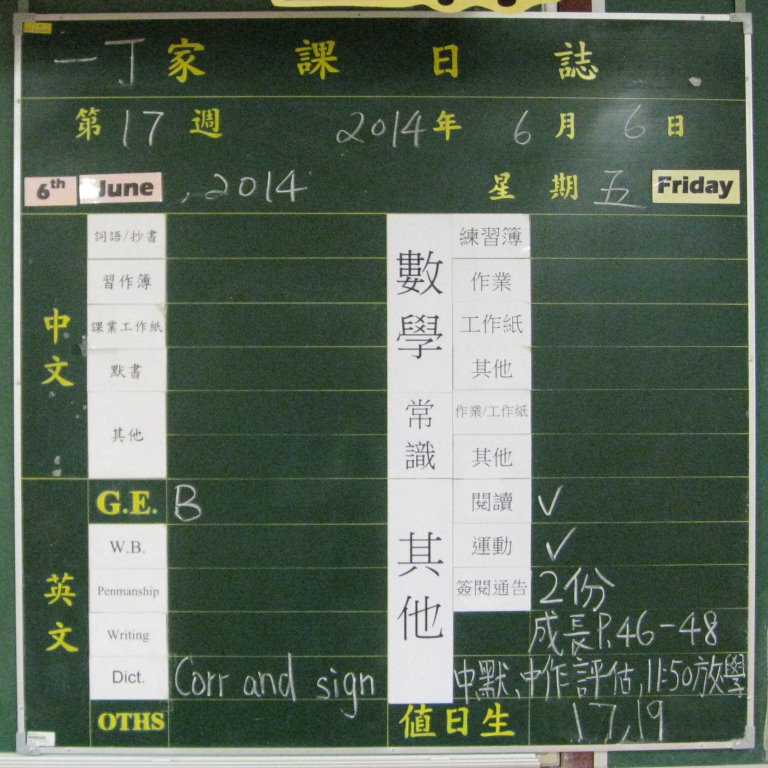 一丁家課日誌
第17週 2014年6月6日
6th June, 2014 星期五 Friday
中文
詞語/抄書
習作簿
課業工作紙
默書
其他
英文
G.E. B
W.B.
Penmanship
Writing
Dict. Corr and sign
OTHS
數學
練習簿
作業
工作紙
其他
常識
作業/工作紙
其他
其他
閱讀 ✓
運動 ✓
簽閱通告 2份
成長P.46-48
中默、中作評估, 11:50放學
值日生 17, 19